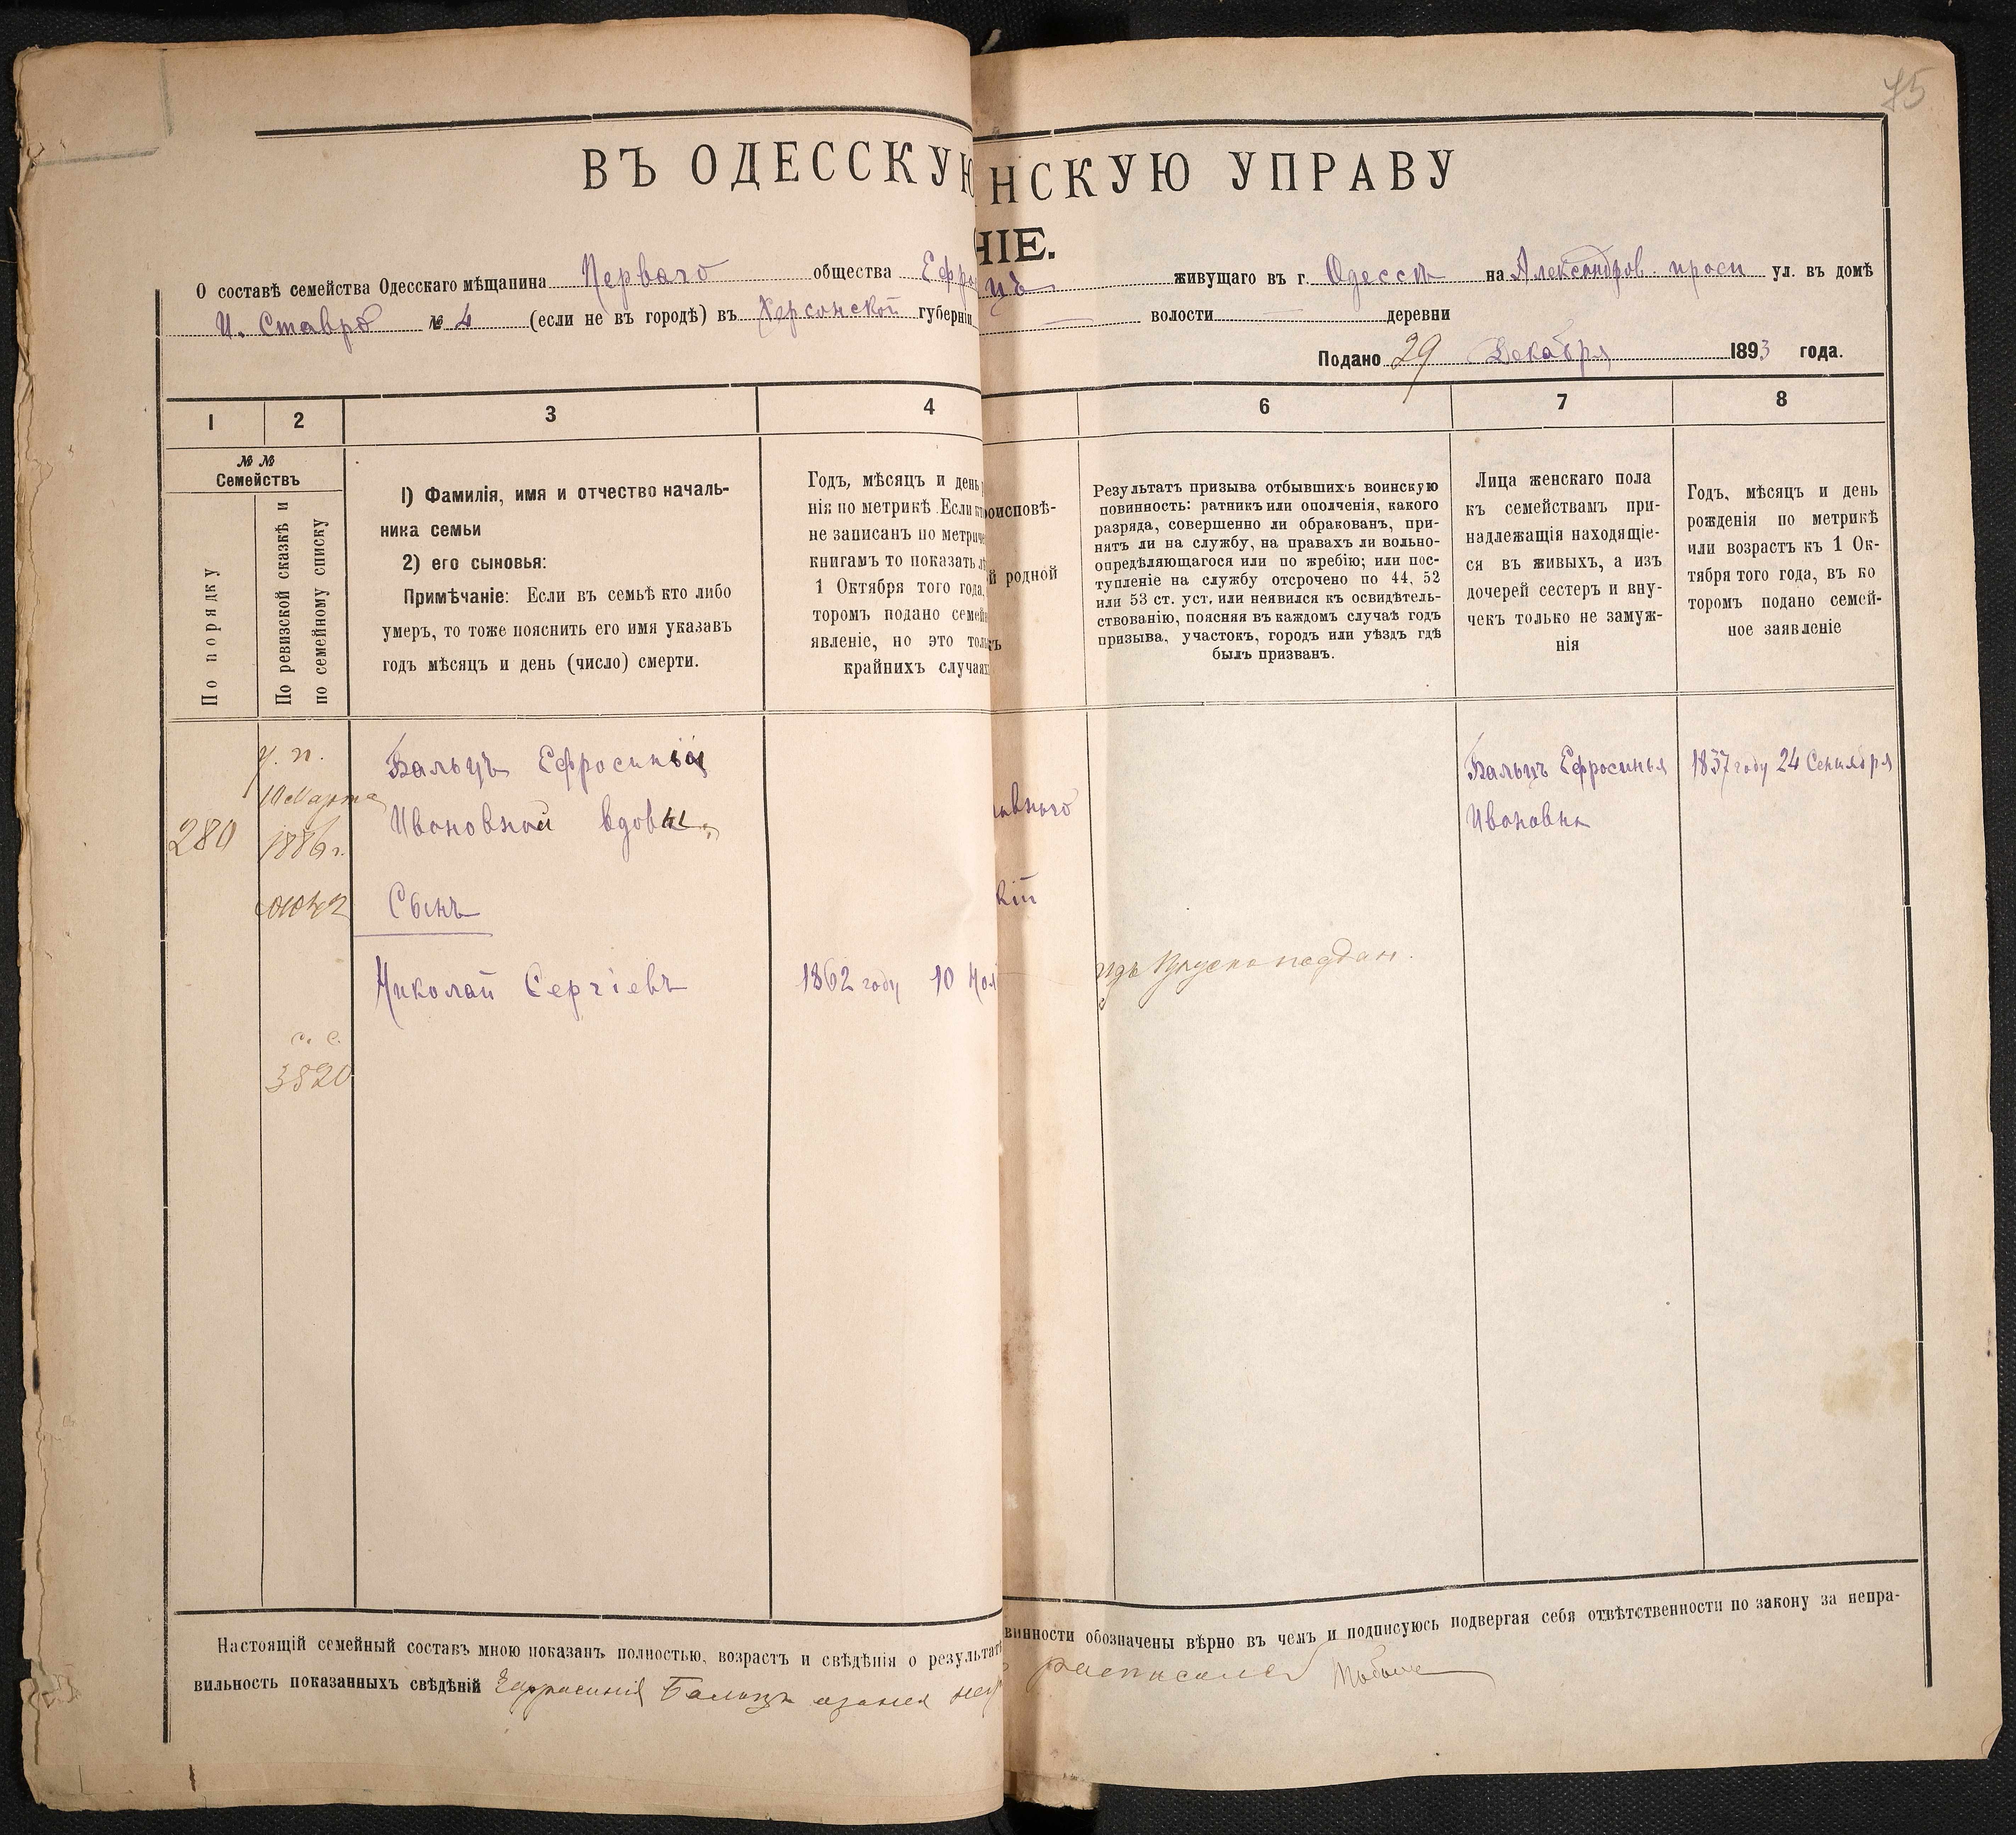 75
ВЪ ОДЕССКУЮ
НСКУЮ УПРАВУ
НІЕ.
О составѣ семейства Одесскаго мѣщанина Перваго общества Ефро
цъ живущаго въ г. Одессѣ на Александров. просп ул. въ домѣ
И. Ставро № 4 (если не въ городѣ) въ Херсонской губерніи
волости деревни
Подано 29 Декабря 1893 года.
1 2 3 4
6 7 8
№ №
Семействъ
По порядку
По ревизской сказкѣ и
по семейному списку
1) Фамилія, имя и отчество началь-
ника семьи
2) его сыновья:
Примѣчаніе: Если въ семьѣ кто либо
умеръ, то тоже пояснить его имя указавъ
годъ мѣсяцъ и день (число) смерти.
Годъ, мѣсяцъ и день
нія по метрикѣ. Если кто
не записанъ по метриче
книгамъ то показать лѣ
1 Октября того года,
торомъ подано семей
явленіе, но это толь
крайнихъ случаях
роисповѣ-
й родной
ъ
Результатъ призыва отбывшихъ воинскую
повинность: ратникъ или ополченія, какого
разряда, совершенно ли обракованъ, при-
нятъ ли на службу, на правахъ ли вольно-
опредѣляющагося или по жребію; или пос-
тупленіе на службу отсрочено по 44, 52
или 53 ст. уст. или неявился къ освидѣтель-
ствованію, поясняя въ каждомъ случаѣ годъ
призыва, участокъ, городъ или уѣздъ гдѣ
былъ призванъ.
Лица женскаго пола
къ семействамъ при-
надлежащія находящіе-
ся въ живыхъ, а изъ
дочерей сестеръ и вну-
чекъ только не замуж-
нія
Годъ, мѣсяцъ и день
рожденія по метрикѣ
или возрастъ къ 1 Ок-
тября того года, въ ко
торомъ подано семей-
ное заявленіе
280
у. п.
10 Марта
1886 г.
Бальцъ Ефросиніи
Ивановной вдовы
Сынъ
Николай Сергіевъ
1862 году 10 Ноя
с. с.
3820
авнаго
кій
Бальцъ Ефросинья
Ивановна
1837 году 24 Сентября
Настоящій семейный составъ мною показанъ полностью, возрастъ и свѣдѣнія о результатѣ
винности обозначены вѣрно въ чемъ и подписуюсь подвергая себя отвѣтственности по закону за непра-
вильность показанныхъ свѣдѣній Ефросинія Бальцъ
расписался